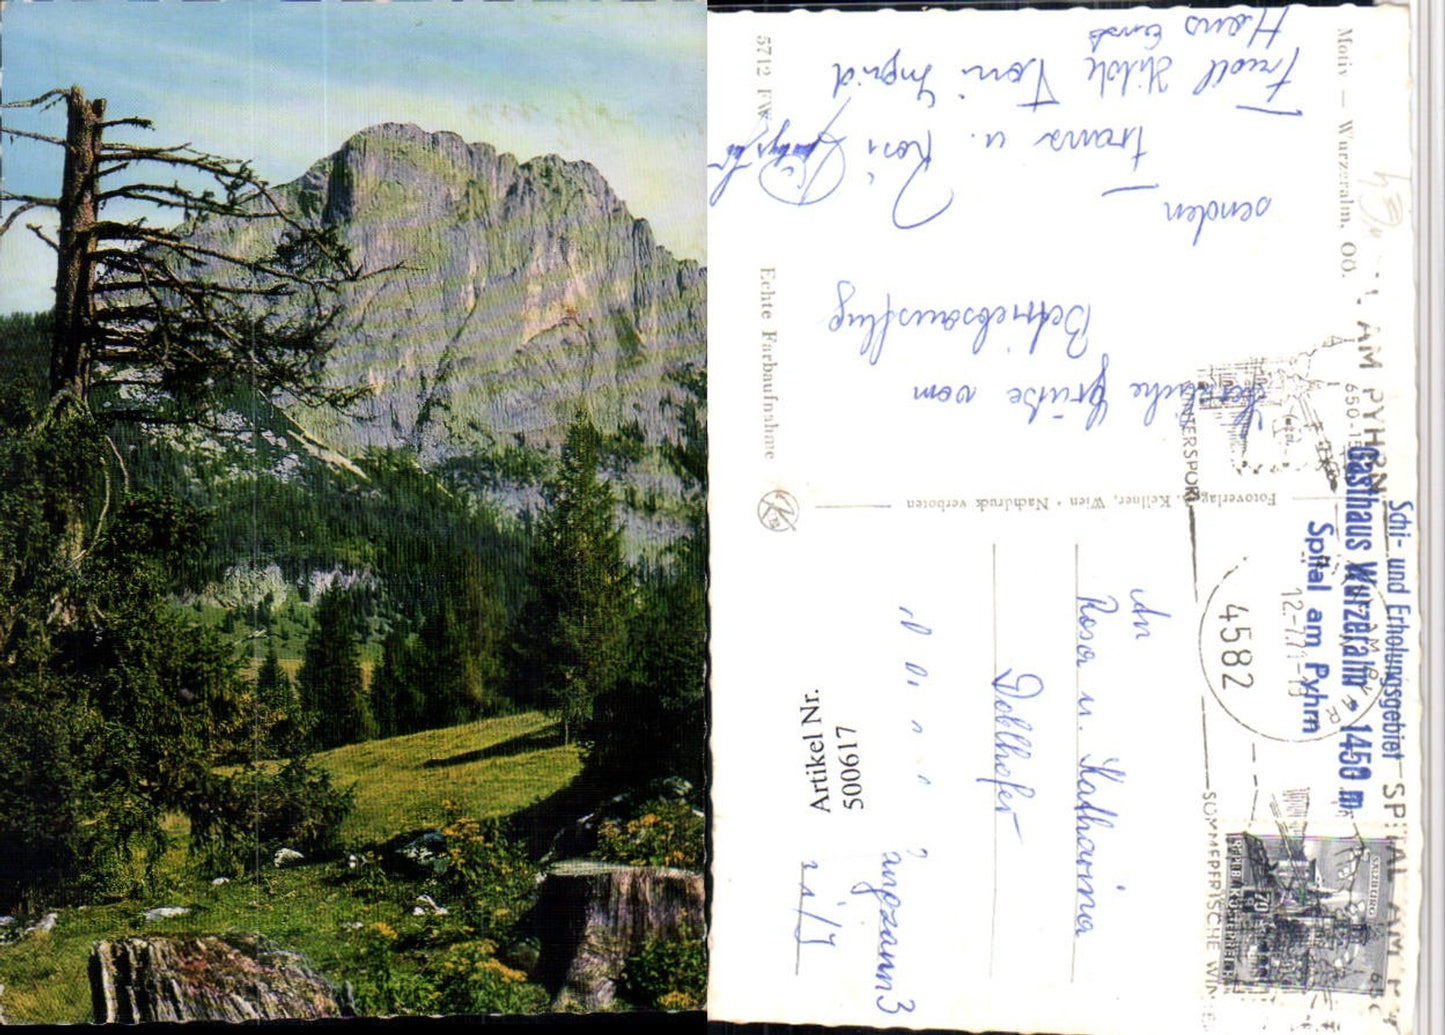 Motiv — Wurzeralm, OÖ.
Herzliche Grüße vom
Betriebsausflug
senden
Franz u. Rosi
Friedl Hilde Toni Ingrid
Hans Ernst
5712 FW
Echte Farbaufnahme
Fotoverlag Kellner, Wien • Nachdruck verboten
Schi- und Erholungsgebiet
Gasthaus Wurzeralm 1450 m
Spital am Pyhrn
4582
12.-7.71-13
WINTERSPORT
SOMMERFRISCHE
SPITAL AM
AM PYHRN
650-1
SALZBURG
REPUBLIK ÖSTERREICH
An
Rosa u. Katharina
Dollhofer
Artikel Nr.
500617